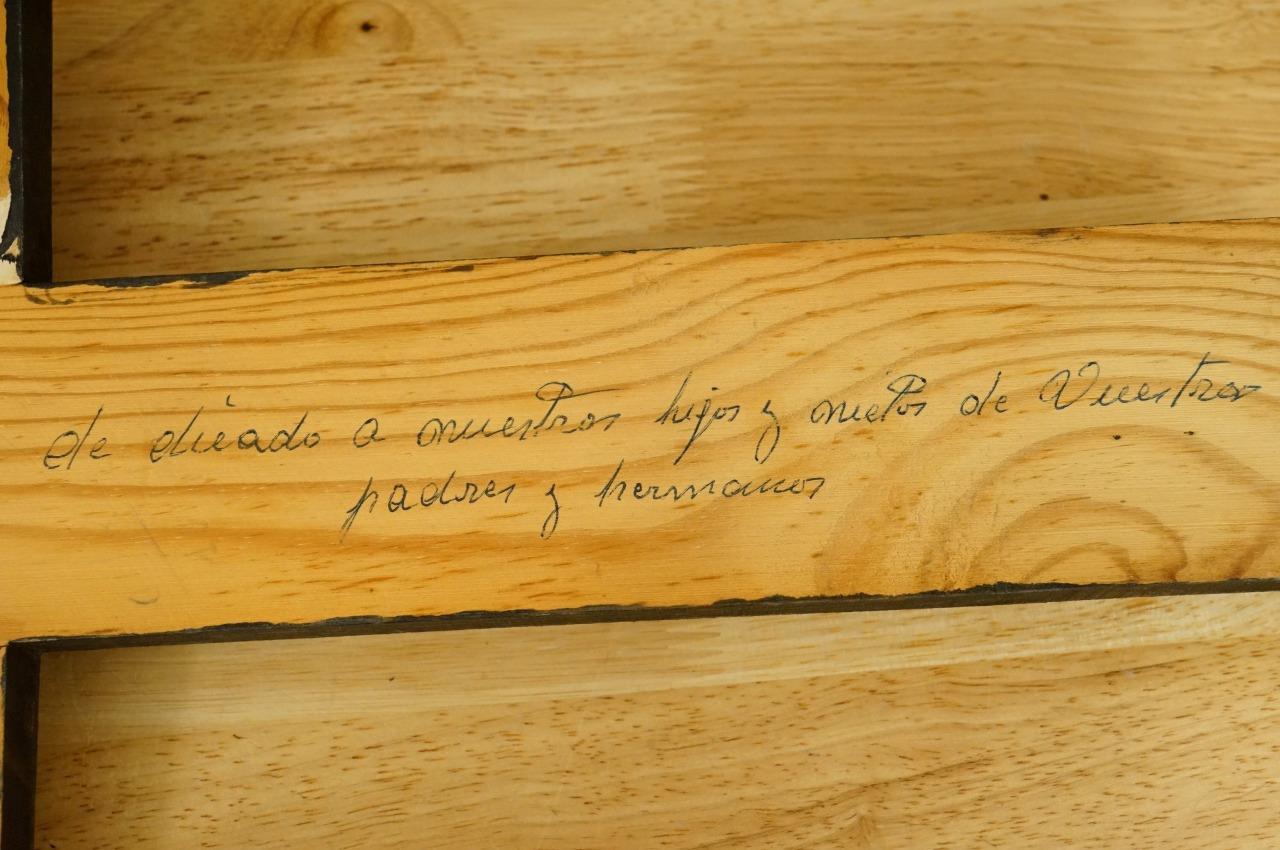 de dicado a nuestros hijos y nietos de Vuestros
padres y hermanos